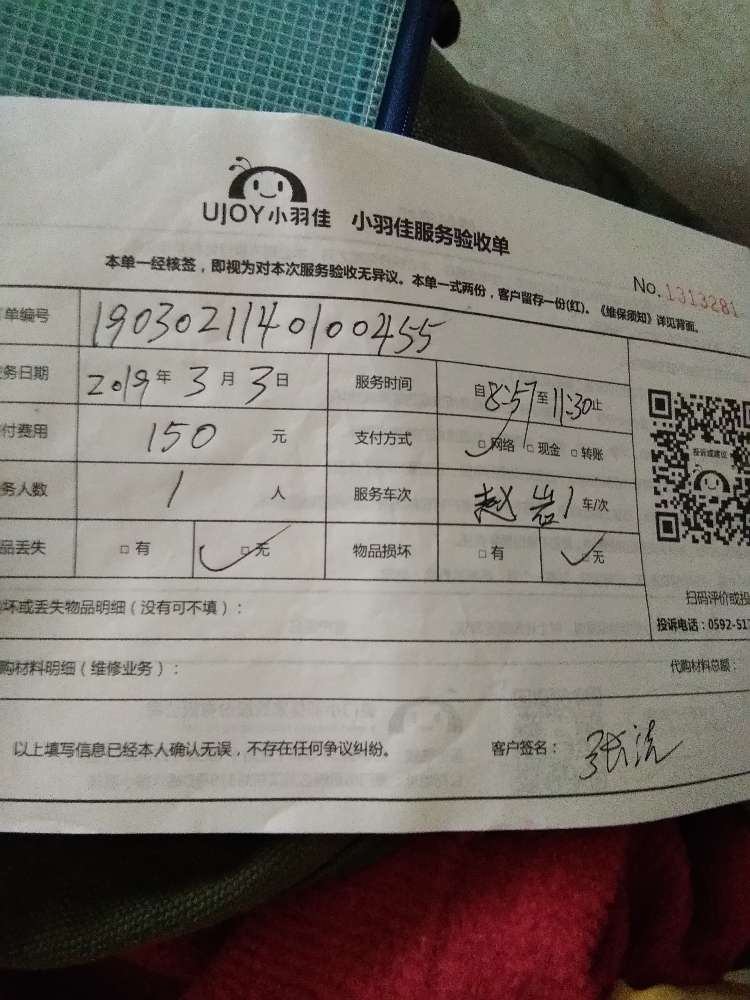 UJOY小羽佳 小羽佳服务验收单
本单一经核签，即视为对本次服务验收无异议。本单一式两份，客户留存一份(红)。《维保须知》详见背面。
No.1313281
单编号 1903021140100455
务日期 2019年3月3日 服务时间 自8:57至11:30止
付费用 150元 支付方式 □网络 □现金 □转账
务人数 1人 服务车次 赵岩1车/次
品丢失 □有 □无 物品损坏 □有 □无
投诉或建议
扫码评价或投
坏或丢失物品明细（没有可不填）：
投诉电话：0592-517
购材料明细（维修业务）： 代购材料总额：
以上填写信息已经本人确认无误，不存在任何争议纠纷。 客户签名： 张